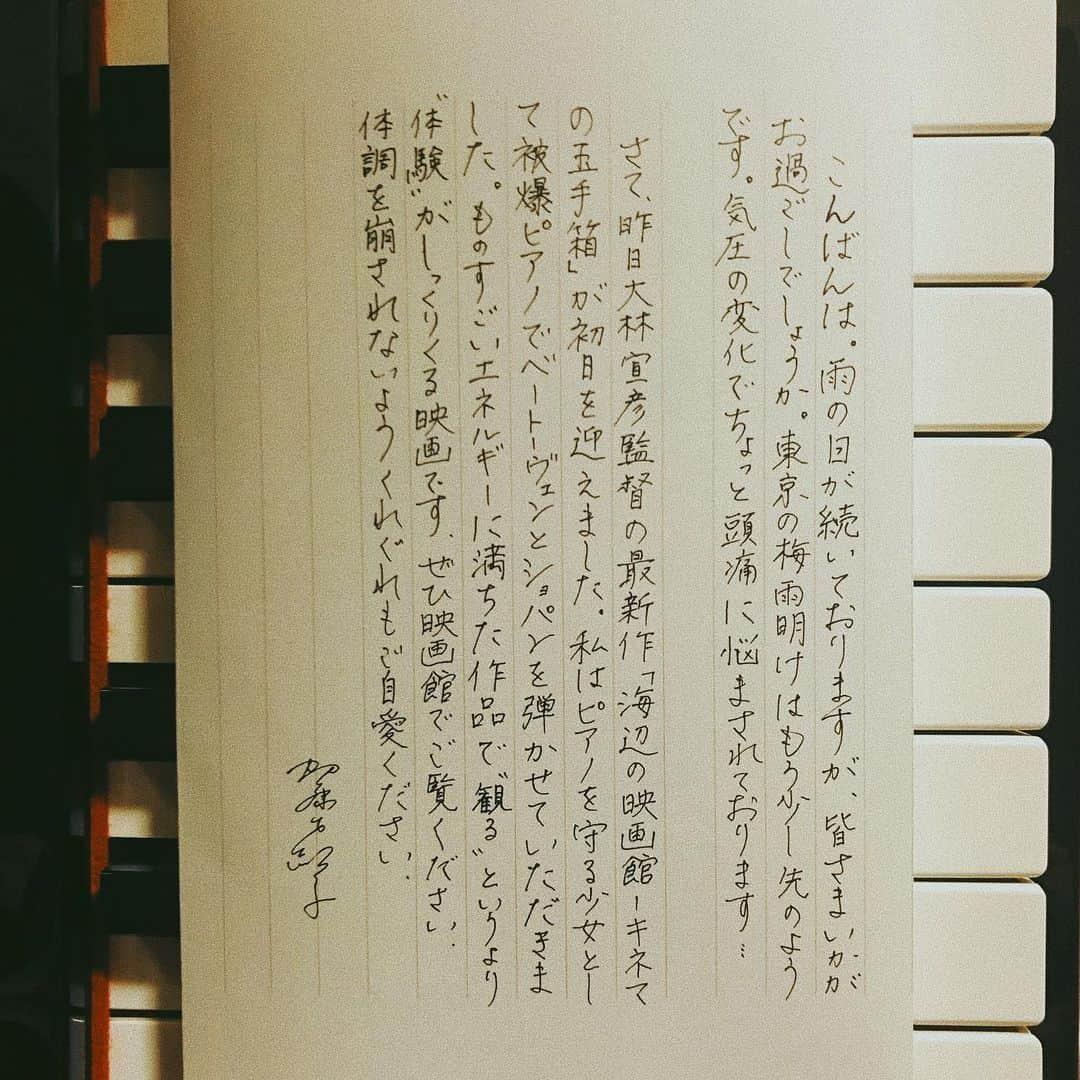 こんばんは。雨の日が続いておりますが、皆さまいかが
お過ごしでしょうか。東京の梅雨明けはもう少し先のよう
です。気圧の変化でちょっと頭痛に悩まされております…
さて、昨日大林宣彦監督の最新作「海辺の映画館ーキネマ
の玉手箱」が初日を迎えました。私はピアノを守る少女とし
て被爆ピアノでベートーヴェンとショパンを弾かせていただきま
した。ものすごいエネルギーに満ちた作品で“観る”というより
“体験”がしっくりくる映画です。ぜひ映画館でご覧ください。
体調を崩されないようくれぐれもご自愛ください。